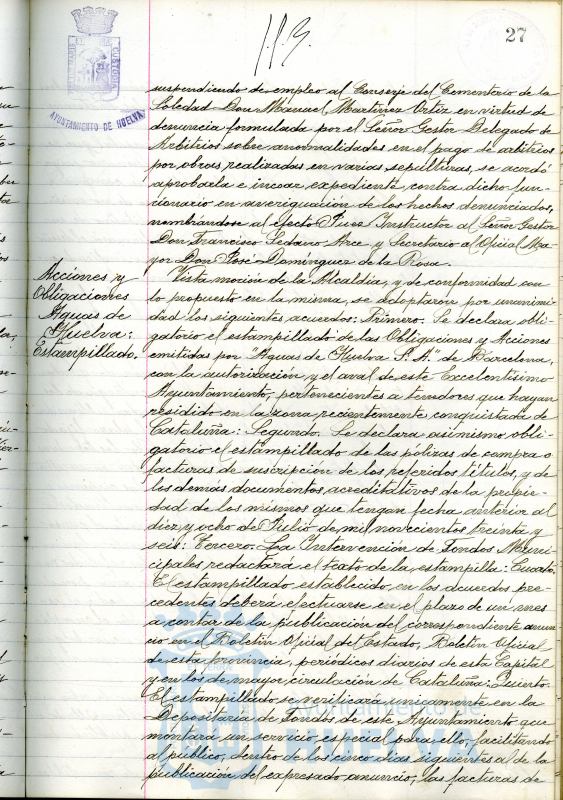 27
113.
CUSTODIA
AYUNTAMIENTO DE HUELVA
suspendiendo de empleo al Conserje del Cementerio de la
Soledad Don Manuel Martinez Ortiz en virtud de
denuncia formulada por el Señor Gestor Delegado de
Arbitrios sobre anormalidades en el pago de arbitrios
por obras realizadas en varias sepulturas, se acordó
aprobarla e incoar expediente contra dicho fun-
cionario en averiguación de los hechos denunciados,
nombrándose al efecto Juez Instructor al Señor Gestor
Don Francisco Sedano Arce y Secretario al Oficial Ma-
yor Don José Dominguez de la Rosa.
Acciones y
Obligaciones
Aguas de
Huelva:
Estampillado.
Vista moción de la Alcaldia, y de conformidad con
lo propuesto en la misma, se adoptaron por unanimi-
dad los siguientes acuerdos: Primero. Se declara obli-
gatorio el estampillado de las Obligaciones y Acciones
emitidas por "Aguas de Huelva S. A." de Barcelona,
con la autorización y el aval de este Excelentisimo
Ayuntamiento, pertenecientes a tenedores que hayan
residido en la zona recientemente conquistada de
Cataluña: Segundo. Se declara asimismo obli-
gatorio el estampillado de las pólizas de compra o
facturas de suscripción de los referidos titulos, y de
los demás documentos acreditativos de la propie-
dad de los mismos que tengan fecha anterior al
diez y ocho de Julio de mil novecientos treinta y
seis: Tercero. La Intervención de Fondos Muni-
cipales redactará el texto de la estampilla: Cuarto.
El estampillado establecido en los acuerdos pre-
cedentes deberá efectuarse en el plazo de un mes
a contar de la publicación del correspondiente anun-
cio en el Boletin Oficial del Estado, Boletin Oficial
de esta provincia, periódicos diarios de esta Capital
y en los de mayor circulación de Cataluña: Quinto.
El estampillado se verificará unicamente en la
Depositaria de Fondos de este Ayuntamiento que
montará un servicio especial para ello, facilitando
al público, dentro de los cinco dias siguientes al de la
publicación del expresado anuncio, las facturas de
Ayuntamiento de
HUELVA